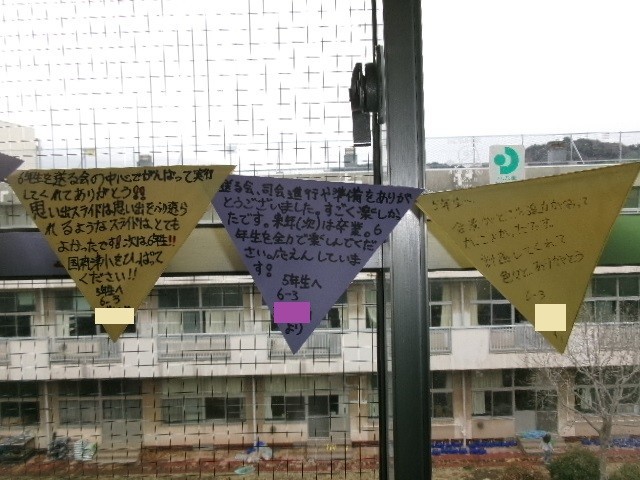 6年生を送る会の中心でがんばって実行
してくれてありがとう!!
思い出スライドは思い出をふり返ら
れるようなスライドは、とても
よかったです!!次は6年生!!
国府第小をひっぱって
ください!!
5年生へ
6-3
送る会、司会、進行や準備をありが
とうございました。すごく楽しか
ったです。来年(次)は卒業。6
年生を全力で楽しんでくだ
さい。応えんしていま
す。
5年生へ
6-3
より
5年生へ
迫力があって
かっこよかったです。
計画してくれて
ありがとう
6-3